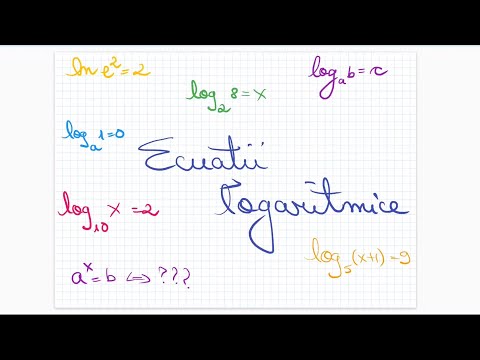 ln e² = 2
log₂ 8 = x
logₐ b = c
logₐ 1 = 0
Ecuatii
logaritmice
log₁₀ x = 2
log₅ (x+1) = 9
aˣ = b ⇔ ???